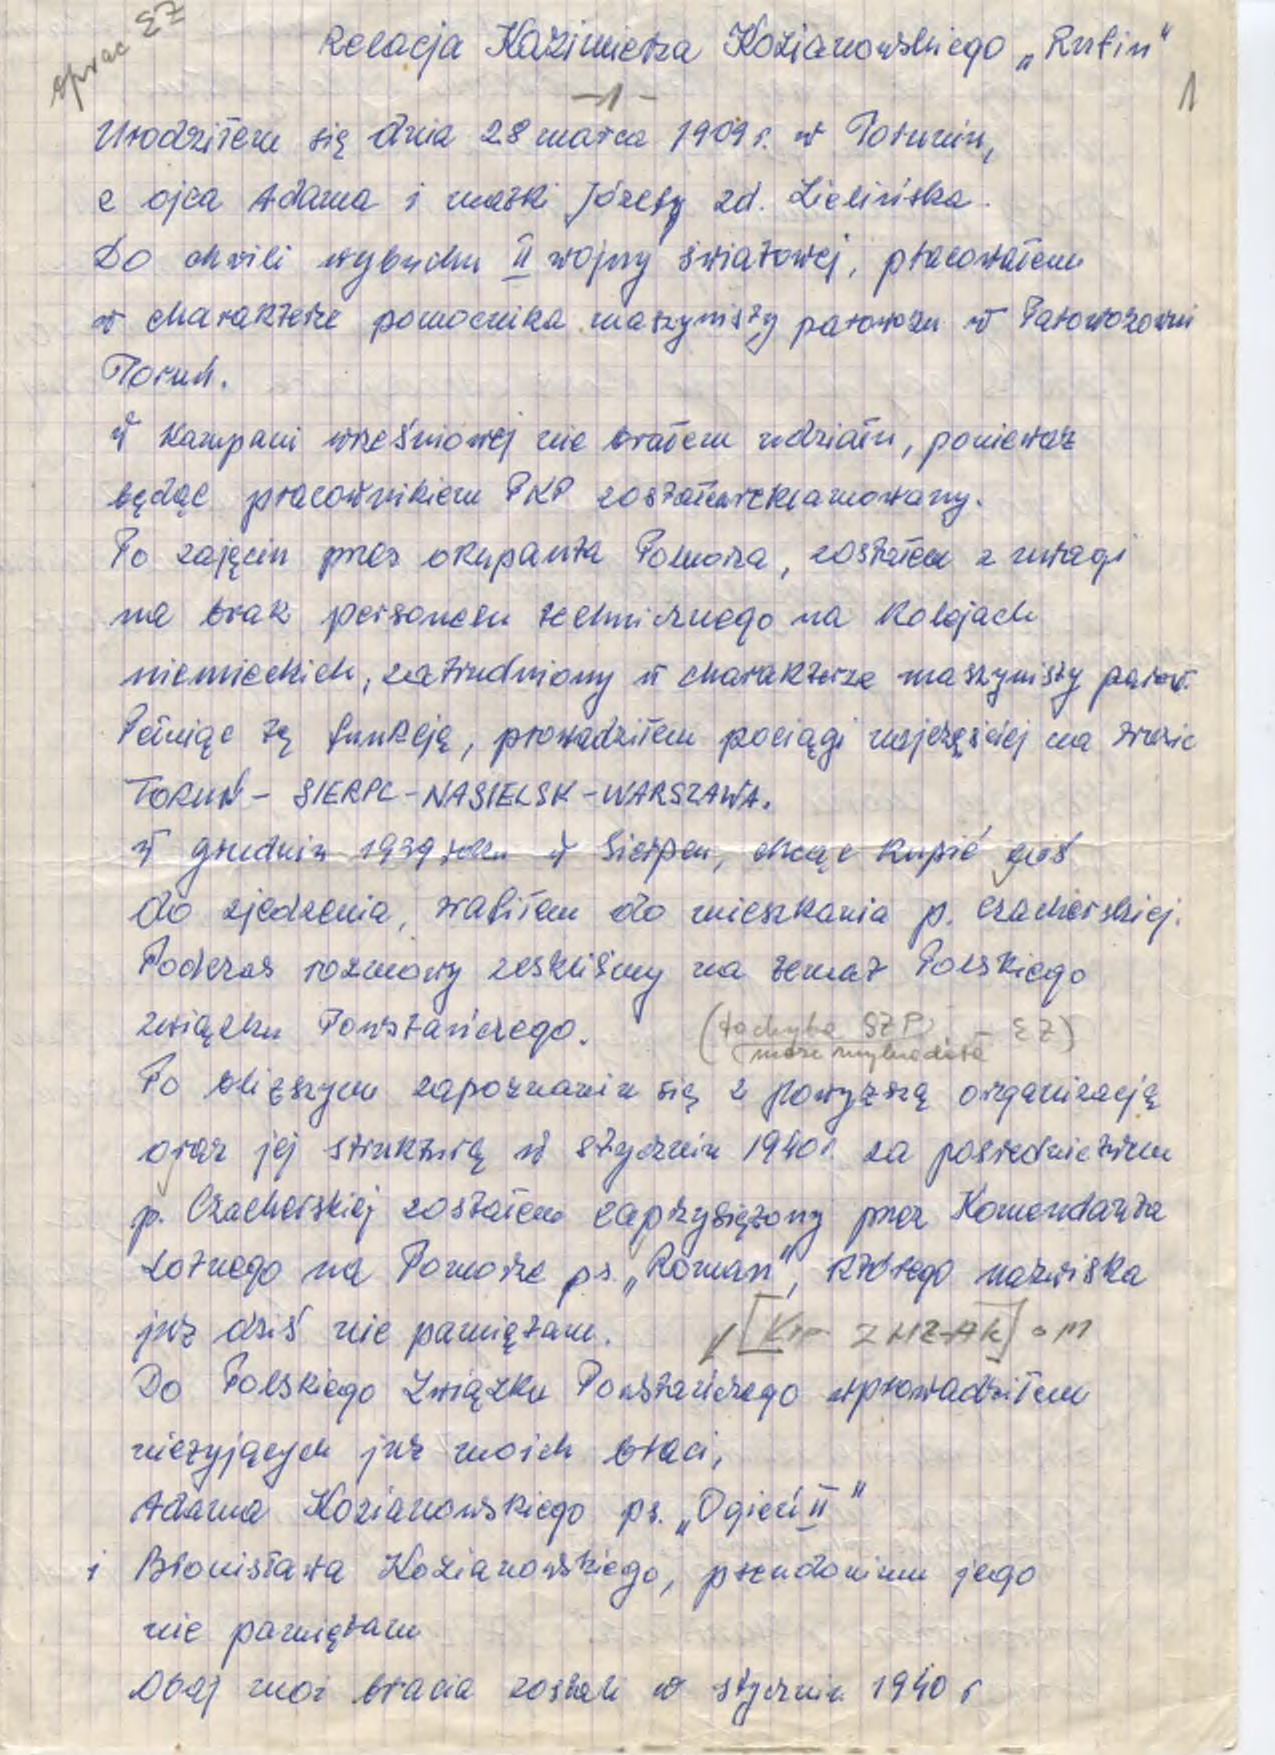 oprac EZ
Relacja Kazimierza Kozianowskiego „Rutin"
-1-
1
Urodziłem się dnia 28 marca 1909 r. w Toruniu,
z ojca Adama i matki Józefy zd. Zielińska.
Do chwili wybuchu II wojny światowej, pracowałem
w charakterze pomocnika maszynisty parowozu w Parowozowni
Toruń.
W Kampani wrześniowej nie brałem udziału, ponieważ
będąc pracownikiem PKP zostałem reklamowany.
Po zajęciu przez okupanta Pomorza, zostałem z uwagi
na brak personelu technicznego na Kolejach
niemieckich, zatrudniony w charakterze maszynisty parow.
Pełniąc tę funkcję, prowadziłem pociągi najczęściej na trasie
TORUŃ - SIERPC - NASIELSK - WARSZAWA.
W grudniu 1939 roku w Sierpcu, chcąc kupić coś
do zjedzenia, trafiłem do mieszkania p. Czacherskiej.
Podczas rozmowy zeszliśmy na temat Polskiego
Związku Powstańczego.
(to chyba SZP - EZ)
może
Po bliższym zapoznaniu się z powyższą organizacją
oraz jej strukturą w styczniu 1940 r. za pośrednictwem
p. Czacherskiej zostałem zaprzysiężony przez Komendanta
Lotnego na Pomorze ps. „Roman", którego nazwiska
już dziś nie pamiętam.
Do Polskiego Związku Powstańczego wprowadziłem
nieżyjących już moich braci,
Adama Kozianowskiego ps. „Ogień II"
i Bronisława Kozianowskiego, pseudonimu jego
nie pamiętam
Obaj moi bracia zostali w styczniu 1940 r